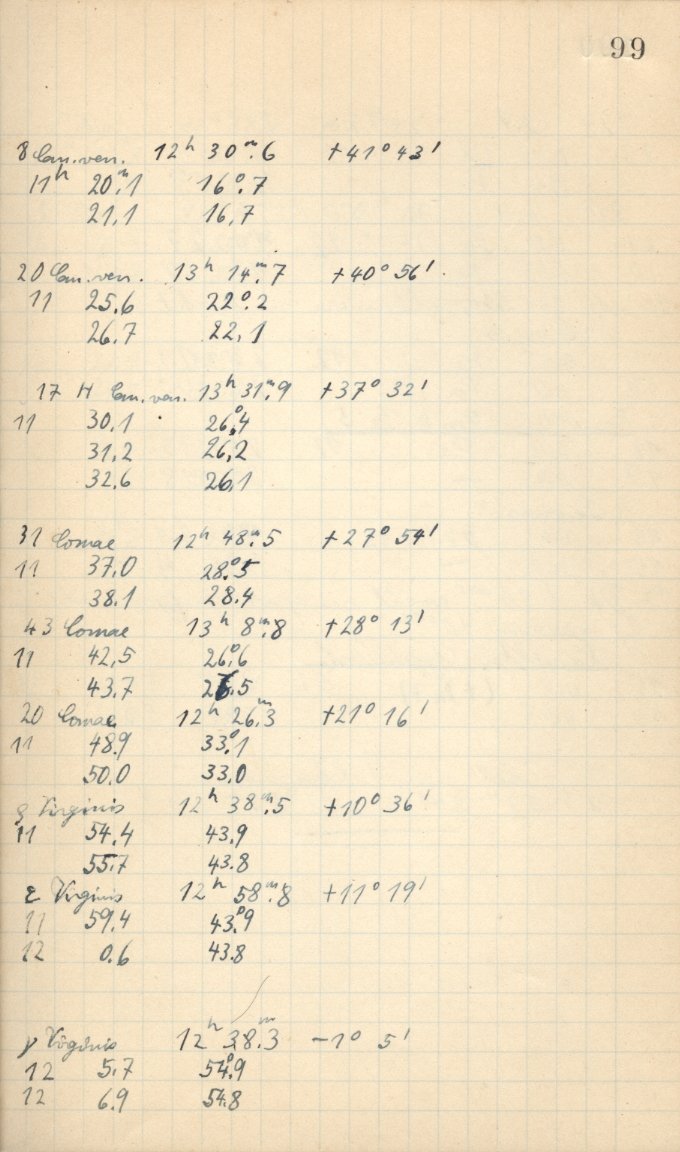 99
8 Can. ven. 12h 30m.6 +41° 43'
11h 20m.1 16°.7
21,1 16,7
20 Can. ven. 13h 14m.7 +40° 56'.
11 25.6 22°.2
26.7 22,1
17 H Can. ven. 13h 31m.9 +37° 32'
11 30.1 26°.4
31.2 26.2
32.6 26.1
31 Comae 12h 48m.5 +27° 54'
11 37.0 28°.5
38.1 28.4
43 Comae 13h 8m.8 +28° 13'
11 42,5 26°.6
43.7 26.5
20 Comae 12h 26m.3 +21° 16'
11 48.9 33°.1
50.0 33.0
Virginis 12h 38m.5 +10° 36'
11 54.4 43.9
55.7 43.8
ε Virginis 12h 58m.8 +11° 19'
11 59.4 43°.9
12 0.6 43.8
γ Virginis 12h 38m.3 -1° 5'
12 5.7 54°.9
12 6.9 54.8